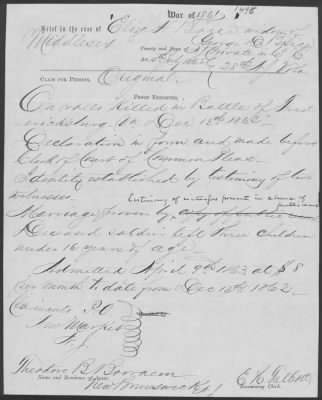 War of 1861
Brief in the case of Eliza A. widow of
Middlesex
County and State of
George
Private in Co. C
28th N.J. Vols
CLAIM FOR PENSION, Original
PROOF EXHIBITED,
On rolls Killed in Battle of Fred
ericksburg Va Dec 13th 1862
Declaration in form and made before
Clerk of Court of Common Pleas.
Identity established by testimony of two
witnesses.
Testimony of witnesses present in absence of
Marriage proven by public record
Deceased soldier left three children
under 16 years of age.
Submitted April 9th 1863 at $8
per month to date from Dec 13th 1862.
Claimants P.O.
New Market
N.J.
Theodore B. Booraem
Name and Residence of Agent,
New Brunswick N.J.
E. H. Talbott,
Examining Clerk.